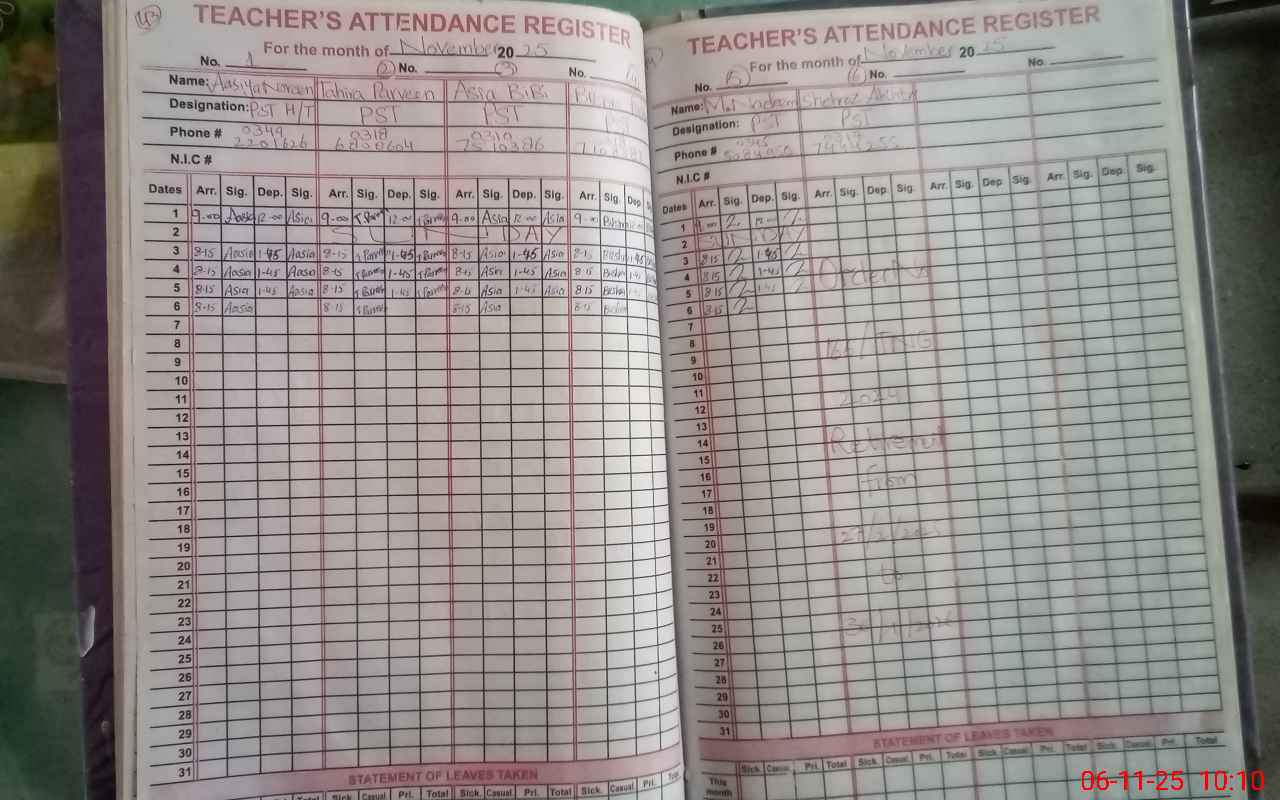 43
TEACHER'S ATTENDANCE REGISTER
For the month of November 2025
No. 1 (2) No. (3) No.
Name: Aasiya Noreen Tahira Parveen Asia BiBi
Designation: PST H/T PST PST PST
Phone # 0344 0318 0310
2201626 6800604 7510386
N.I.C #
Dates Arr. Sig. Dep. Sig. Arr. Sig. Dep. Sig. Arr. Sig. Dep. Sig. Arr. Sig. Dep.
1 9.00 Aasia 12.00 Asia 9.00 T Parveen 12.00 T Parveen 9.00 Asia 12.00 Asia 9.00
2 SUNDAY
3 8-15 Aasia 1-45 Aasia 8-15 T Parveen 1-45 T Parveen 8-15 Asia 1-45 Asia 8-15 Bushra 1-45
4 8-15 Aasia 1-45 Aasia 8-15 T Parveen 1-45 T Parveen 8-15 Asia 1-45 Asia 8-15 Bushra 1-45
5 8-15 Asia 1-45 Aasia 8-15 T Parveen 1-45 T Parveen 8-15 Asia 1-45 Asia 8-15 Bushra 1-45
6 8-15 Aasia 8-15 T Parveen 8-15 Asia 8-15 Bushra
7
8
9
10
11
12
13
14
15
16
17
18
19
20
21
22
23
24
25
26
27
28
29
30
31
STATEMENT OF LEAVES TAKEN
Sick Casual Pri. Total Sick. Casual Pri. Total Sick. Casual Pri.
TEACHER'S ATTENDANCE REGISTER
For the month of November 2025
No. (5) (6) No. No.
Name: Shehnaz Akhtar
Designation: PST PST
Phone # 0345
N.I.C #
Dates Arr. Sig. Dep. Sig. Arr. Sig. Dep. Sig. Arr. Sig. Dep. Sig. Arr. Sig. Dep. Sig.
1 9.00 12.00
2 SUNDAY
3 8-15 1-45
4 8-15 1-45
5 8-15 1-45
6 8-15
Order No
7
8
9
10
11
2024
12
13
14
Retirement
15
16
from
17
18
19
20
21
22
to
23
24
25
26
27
28
29
30
31
STATEMENT OF LEAVES TAKEN
Sick Casual Pri. Total Sick. Casual Pri. Total Sick. Casual Pri. Total Sick. Casual Pri. Total
This month
06-11-25 10:10